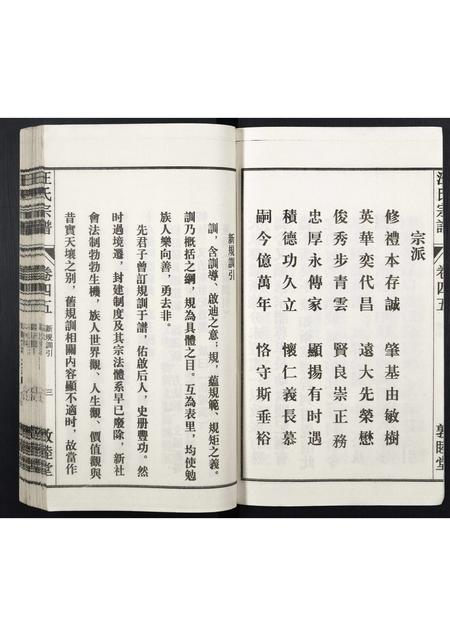 汪氏宗譜
卷四五
敦睦堂
宗派
修禮本存誠 肇基由敏樹
英華奕代昌 遠大先榮懋
俊秀步青雲 賢良崇正務
忠厚永傳家 顯揚有時遇
積德功久立 懷仁義長慕
嗣今億萬年 恪守斯垂裕
新規訓引
訓,含訓導、啟迪之意;規,蘊規範、規矩之義。
訓乃概括之綱,規為具體之目。互為表里,均使勉
族人樂向善,勇去非。
先君子曾訂規訓于譜,佑啟后人,史册豐功。然
時過境遷,封建制度及其宗法體系早已廢除,新社
會法制勃勃生機,族人世界觀、人生觀、價值觀與
昔實天壤之别,舊規訓相關内容顯不適時,故當作
汪氏宗譜
卷四五
新規訓引
三
敦睦堂